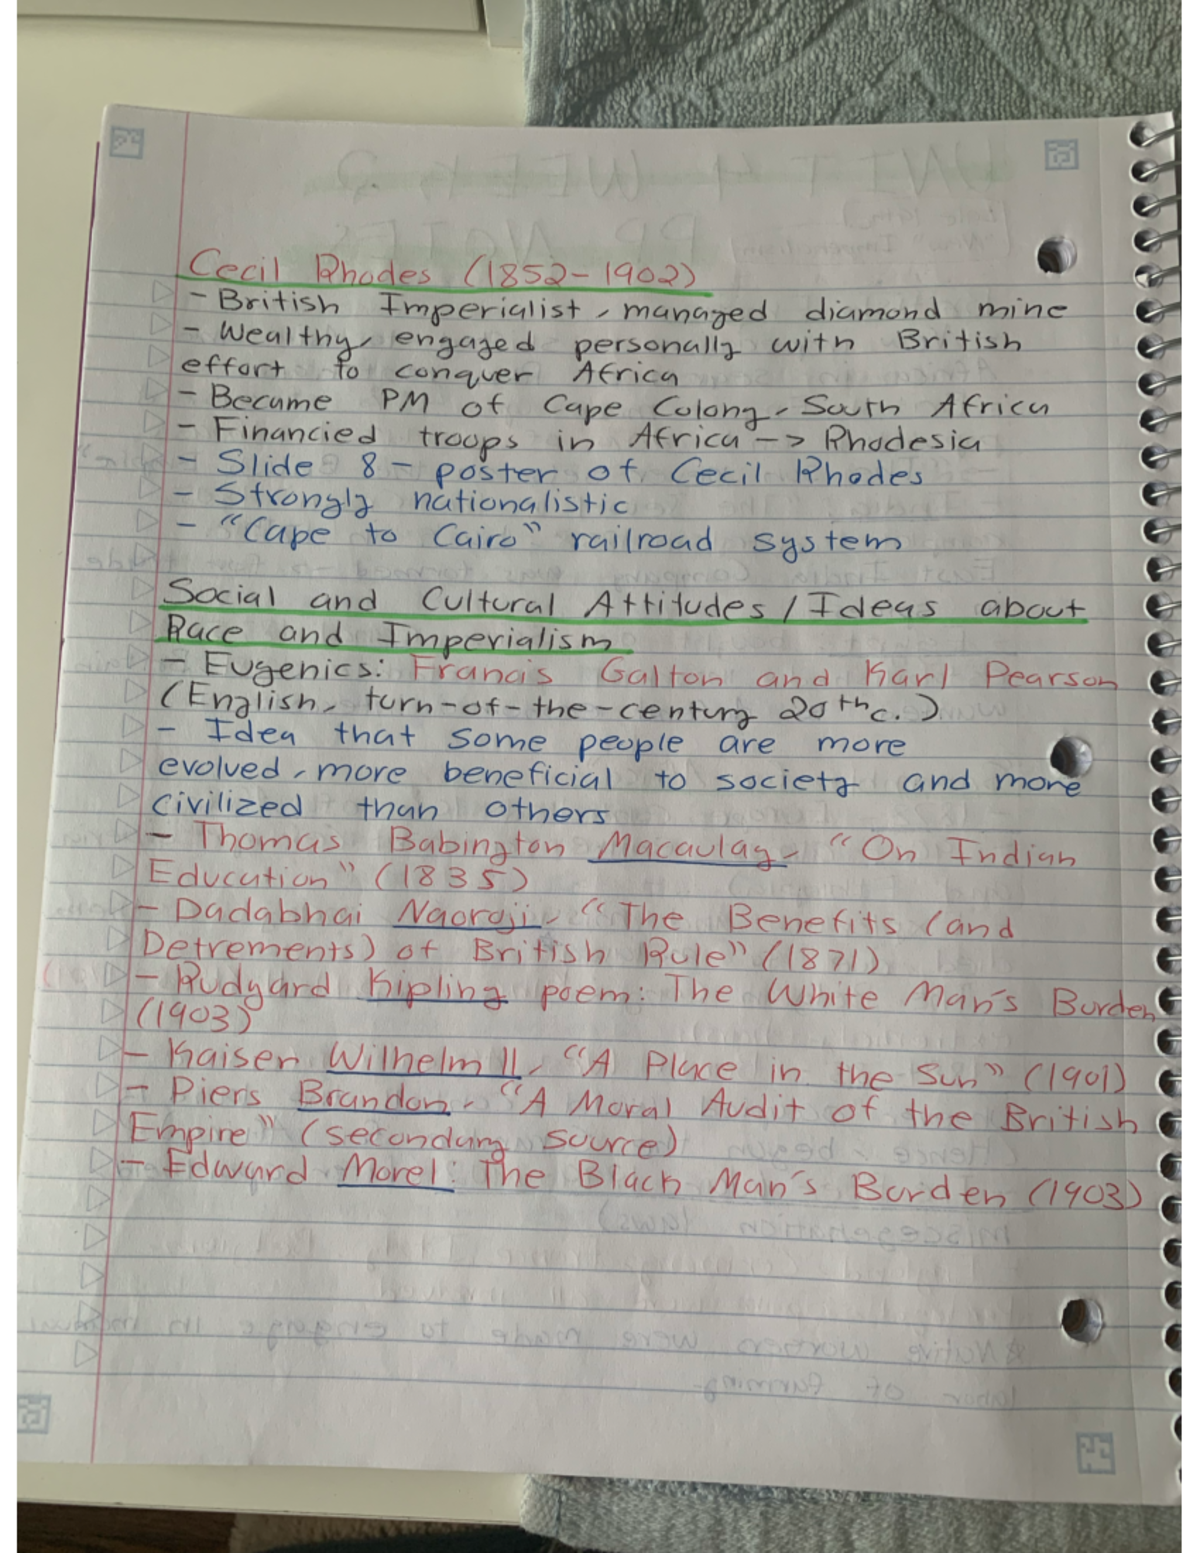 Cecil Rhodes (1852-1902)
- British Imperialist, managed diamond mine
- Wealthy, engaged personally with British
effort to conquer Africa
- Became PM of Cape Colony, South Africa
- Financied troops in Africa --> Rhodesia
- Slide 8 - poster of Cecil Rhodes
- Strongly nationalistic
- "Cape to Cairo" railroad system
Social and Cultural Attitudes / Ideas about
Race and Imperialism
- Eugenics: Francis Galton and Karl Pearson
(English, turn-of-the-century 20th c.)
- Idea that some people are more
evolved, more beneficial to society and more
civilized than others
- Thomas Babington Macaulay, "On Indian
Education" (1835)
- Dadabhai Naoroji, "The Benefits (and
Detrements) of British Rule" (1871)
- Rudyard Kipling poem: The White Man's Burden
(1903)
- Kaiser Wilhelm II, "A Place in the Sun" (1901)
- Piers Brandon, "A Moral Audit of the British
Empire" (secondary source)
- Edward Morel: The Black Man's Burden (1903)